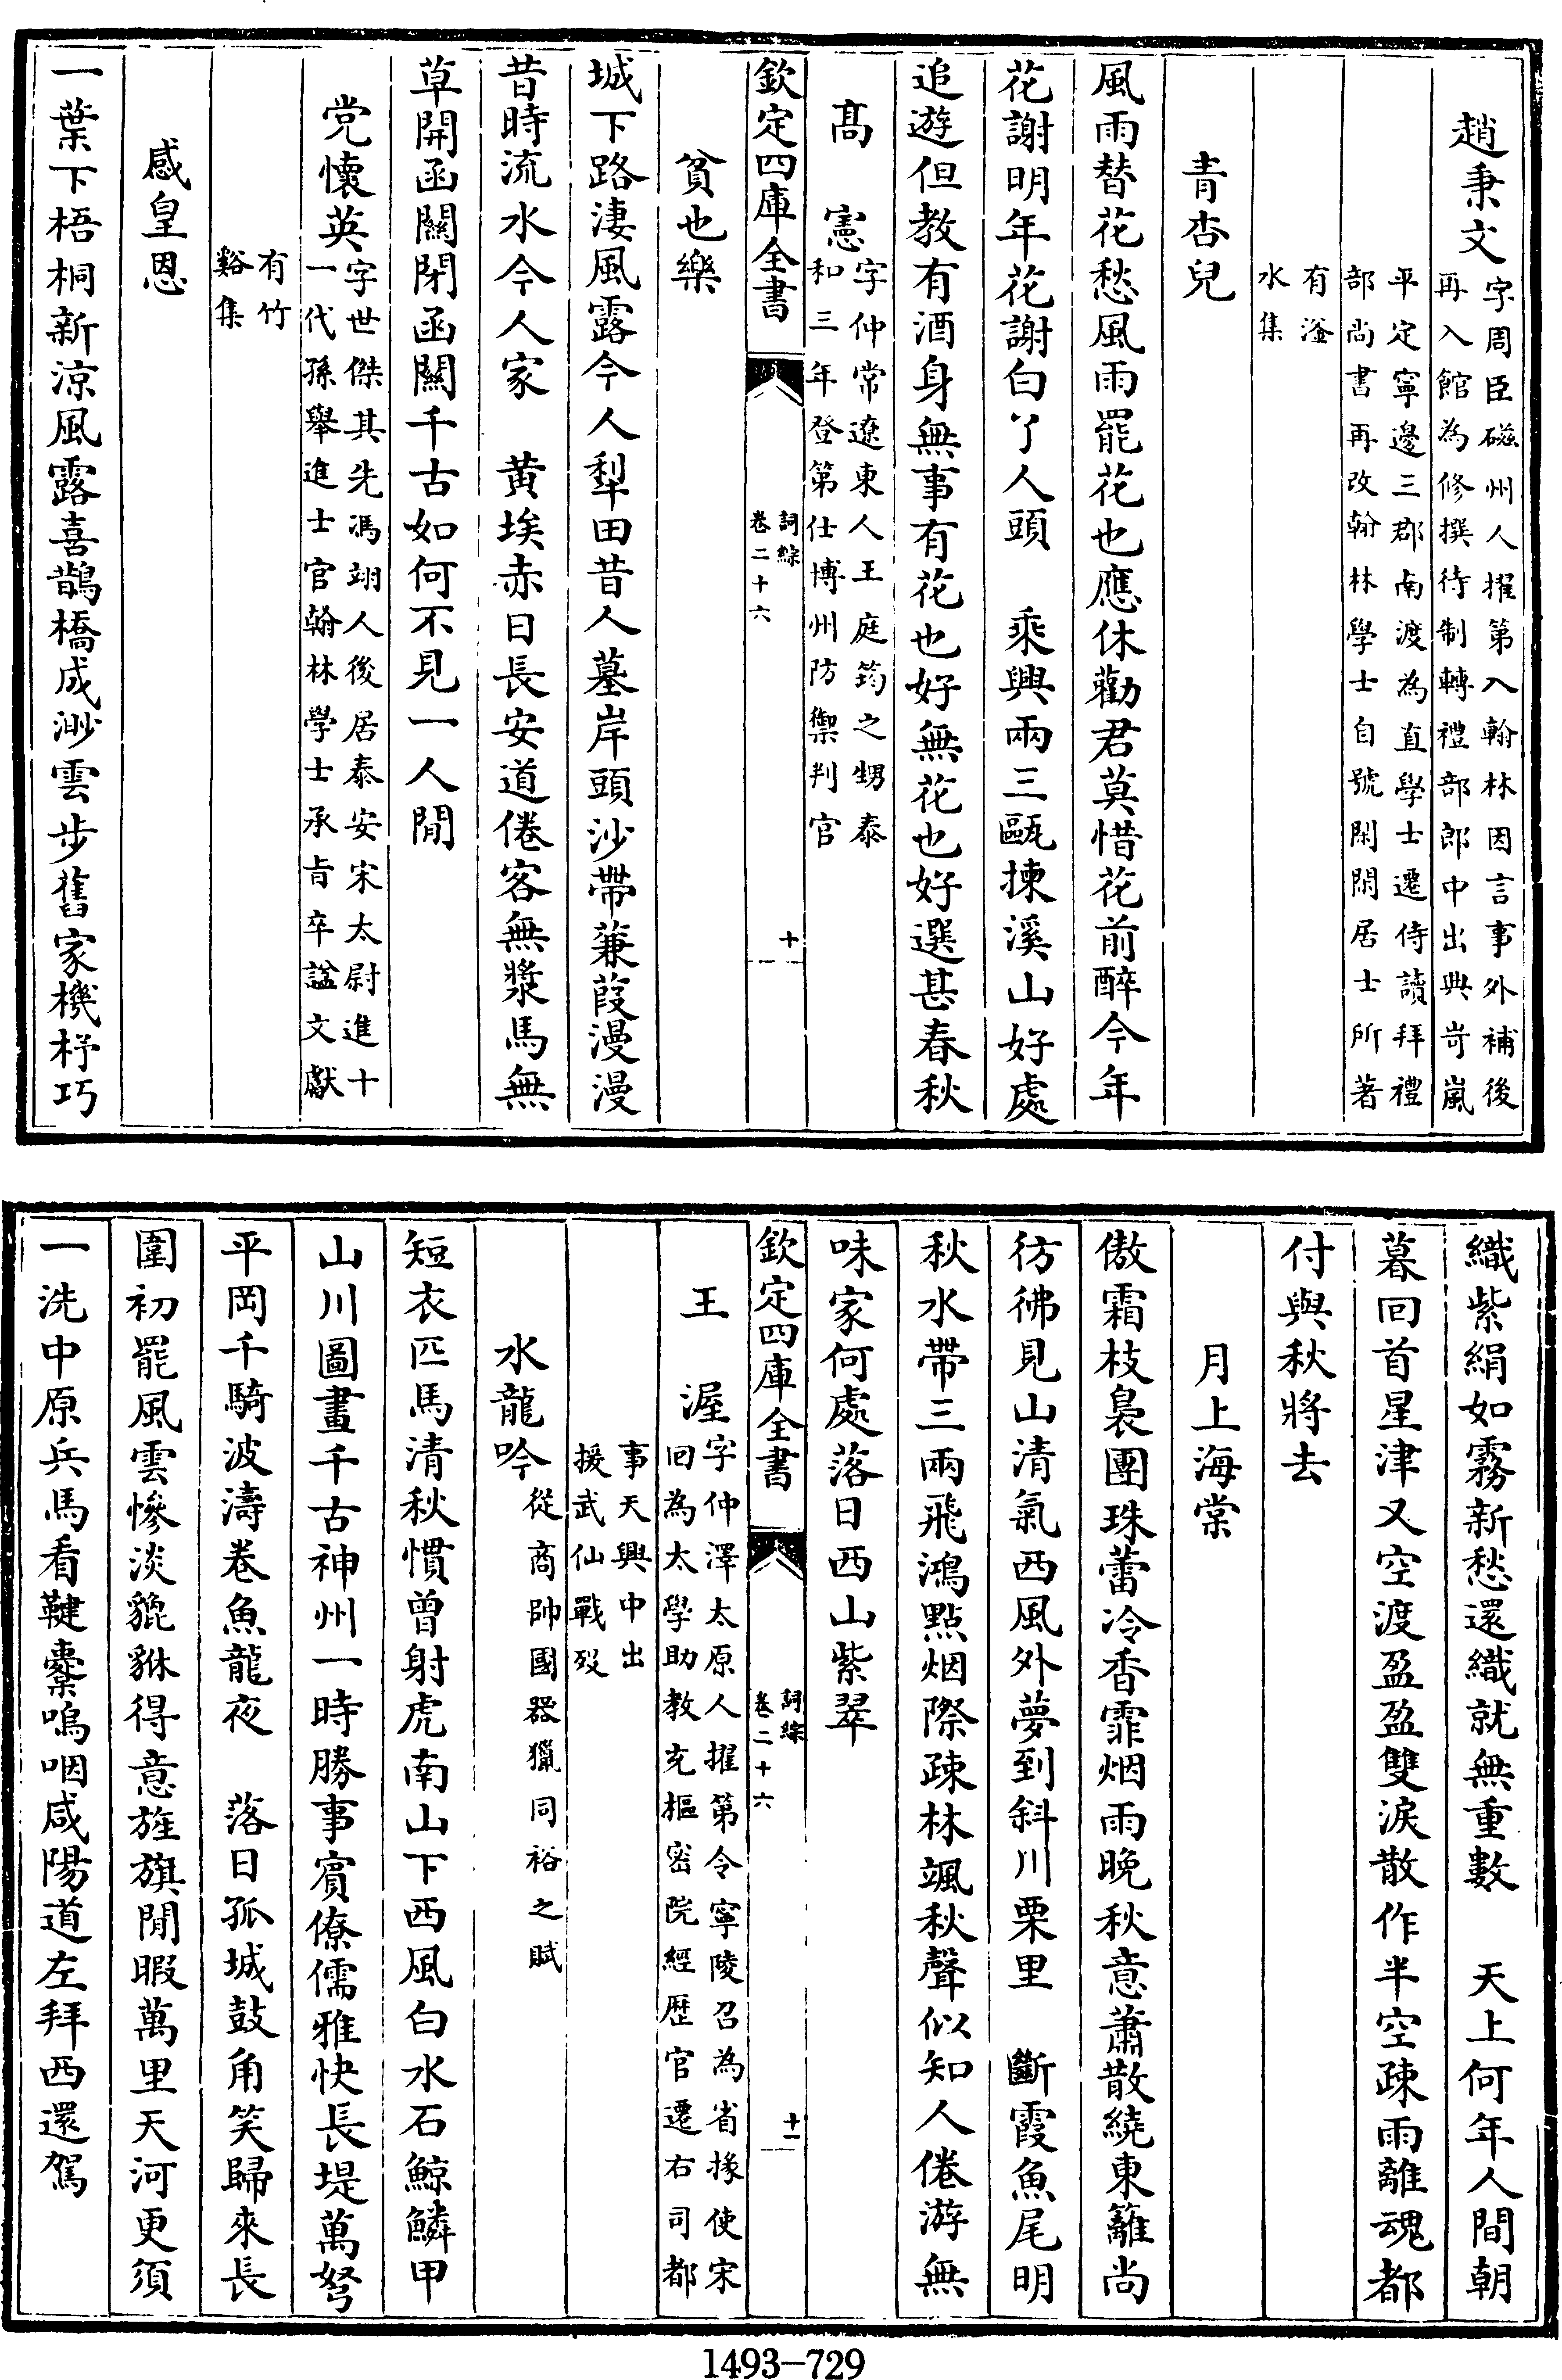 趙秉文字周臣磁州人擢第入翰林因言事外補後
再入館為修撰待制轉禮部郎中出典岢嵐
平定寧邊三郡南渡為直學士遷侍讀拜禮
部尚書再改翰林學士自號閑閑居士所著
有滏
水集
青杏兒
風雨替花愁風雨罷花也應休勸君莫惜花前醉今年
花謝明年花謝白了人頭　乘興兩三甌揀溪山好處
追遊但教有酒身無事有花也好無花也好選甚春秋
高　憲字仲常遼東人王庭筠之甥泰
和三年登第仕博州防禦判官
欽定四庫全書
詞綜
卷二十六
十
貧也樂
城下路淒風露今人犁田昔人墓岸頭沙帶蒹葭漫漫
昔時流水今人家　黃埃赤日長安道倦客無漿馬無
草開函關閉函關千古如何不見一人閒
党懷英字世傑其先馮翊人後居泰安宋太尉進十
一代孫舉進士官翰林學士承旨卒諡文獻
有竹
谿集
感皇恩
一葉下梧桐新涼風露喜鵲橋成渺雲步舊家機杼巧
織紫絹如霧新愁還織就無重數　天上何年人間朝
暮回首星津又空渡盈盈雙淚散作半空疎雨離魂都
付與秋將去
月上海棠
傲霜枝裊團珠蕾冷香霏烟雨晚秋意蕭散繞東籬尚
彷彿見山清氣西風外夢到斜川栗里　斷霞魚尾明
秋水帶三兩飛鴻點烟際疎林颯秋聲似知人倦游無
味家何處落日西山紫翠
欽定四庫全書
詞綜
卷二十六
十一
王　渥字仲澤太原人擢第令寧陵召為省掾使宋
回為太學助教充樞密院經歷官遷右司都
事天興中出
援武仙戰歿
水龍吟從商帥國器獵同裕之賦
短衣匹馬清秋慣曾射虎南山下西風白水石鯨鱗甲
山川圖畫千古神州一時勝事賓僚儒雅快長堤萬弩
平岡千騎波濤卷魚龍夜　落日孤城鼓角笑歸來長
圍初罷風雲慘淡貔貅得意旌旗閒暇萬里天河更須
一洗中原兵馬看鞬櫜嗚咽咸陽道左拜西還駕
1493-729